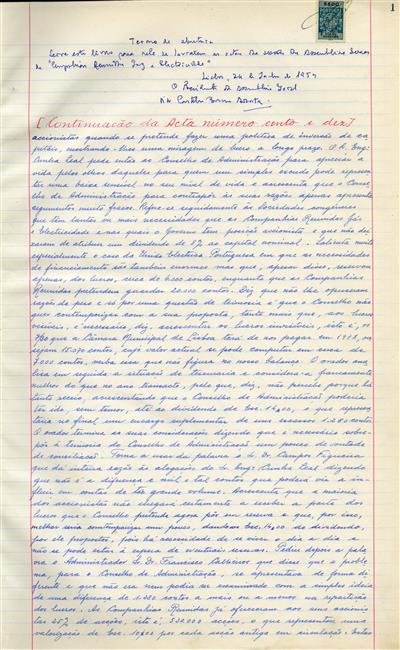 1
Termo de abertura
Serve este livro para nele se lavrarem as actas da sessão da Assembleia Geral
da "Companhias Reunidas Gaz e Electricidade"
Lisboa, 24 de Junho de 1957
O Presidente da Assembleia Geral
[Continuação da Acta número cento e dez]
accionistas quando se pretende fazer uma política de inversão de ca-
pitais, mostrando-lhes uma miragem de lucro a longo prazo. O Sr. Eng.
Cunha Leal pede então ao Conselho de Administração para apreciar a
vida pelos olhos daqueles para quem um simples escudo pode represen-
tar uma baixa sensível no seu nível de vida e acrescenta que o Conse-
lho de Administração para contrapôr às suas razões apenas apresenta
argumentos muito fracos. Refere-se seguidamente às Sociedades congéneres
que têm tantas ou mais necessidades que as Companhias Reunidas Gás
e Electricidade e nas quais o Governo tem posição accionista e que não dei-
xaram de atribuir um dividendo de 5% ao capital nominal. Salienta muito
especialmente o caso da União Eléctrica Portuguesa em que as necessidades
de financiamento são também enormes mas que, apesar disso, reservou
apenas, dos lucros, cerca de 6000 contos, enquanto que as Companhias
Reunidas pretendem guardar 20.000 contos. Diz que não lhe opuseram
razões de peso e só por uma questão de teimosia é que o Conselho não
quer contemporizar com a sua proposta, tanto mais que, aos lucros
visíveis, é necessário, diz, acrescentar os lucros invisíveis, isto é, os
que a Câmara Municipal de Lisboa terá de nos pagar em 1978, ou
sejam 15.070 contos, cujo valor actual se pode computar em cerca de
7.000 contos, verba essa que não figura no nosso balanço. O orador ana-
lisa em seguida a situação de tesouraria e considera-a francamente
melhor do que no ano transacto, pelo que, diz, não percebe porque há
tanto receio, acrescentando que o Conselho de Administração poderia
ter ido, sem temor, até ao dividendo de Esc. 14$00, o que represen-
taria no final um encargo suplementar de uns escassos 1.280 contos.
O orador termina as suas considerações dizendo que é necessário sobre-
pôr à teimosia do Conselho de Administração um pouco de vontade
de conciliação. Toma a usar da palavra o Sr. Dr. Campos Figueira
que dá inteira razão às alegações do Sr. Engº Cunha Leal dizendo
que não é a diferença de mil e tal contos que poderá vir a in-
fluir em contas de tão grande volume. Acrescenta que a maioria
dos accionistas não chegará certamente a receber a parte dos
lucros que o Conselho pretende agora pôr em reserva e que, por isso,
melhor seria contemporizar um pouco, dando os Esc. 14$00 de dividendo,
por ele propostos, pois há necessidade de se viver o dia a dia e
não se pode estar à espera de eventuais reservas. Pediu depois a pala-
vra o Administrador Sr. Dr. Francisco Calheiros que disse que o proble-
ma, para o Conselho de Administração, se apresentava de forma di-
ferente e que não era nem podia ser examinado com a simples ideia
de uma diferença de 1.280 contos a mais ou a menos na repartição
dos lucros. As Companhias Reunidas já ofereceram aos seus accionis-
tas 25% de acções, isto é, 332.000 acções, o que representou uma
valorização de Esc. por cada acção antiga em circulação. Estas